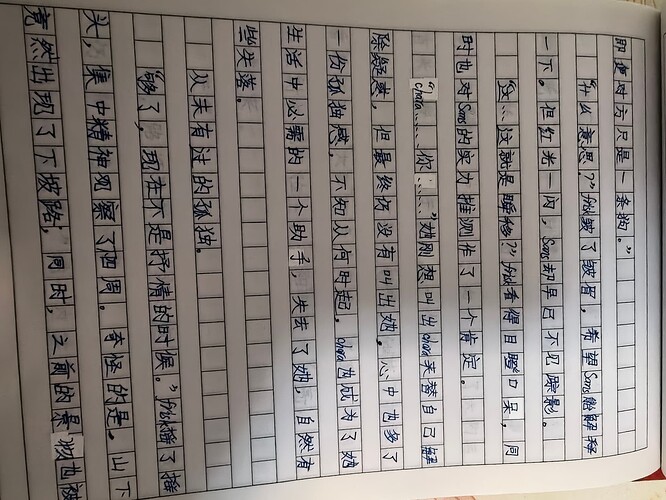 即使对方只是一条狗。”
“什么意思？”Frisk皱了皱眉，希望Sans能解释
一下。但红光一闪，Sans却早已不见踪影。
“这……这就是瞬移？”Frisk看得目瞪口呆，同
时也对Sans的实力推测作了一个肯定。
“Chara……你……”她刚想叫出Chara来替自己解
除疑惑，但最终仍没有叫出她。心中也多了
一份孤独感。不知从何时起，Chara也成为了她
生活中必需的一个助手，失去了她，自然有
些失落。
从未有过的孤独。
“够了，现在不是抒情的时候。”Frisk摇了摇
头，集中精神观察了四周。奇怪的是，山下
竟然出现了下坡路；同时，之前的景物也被